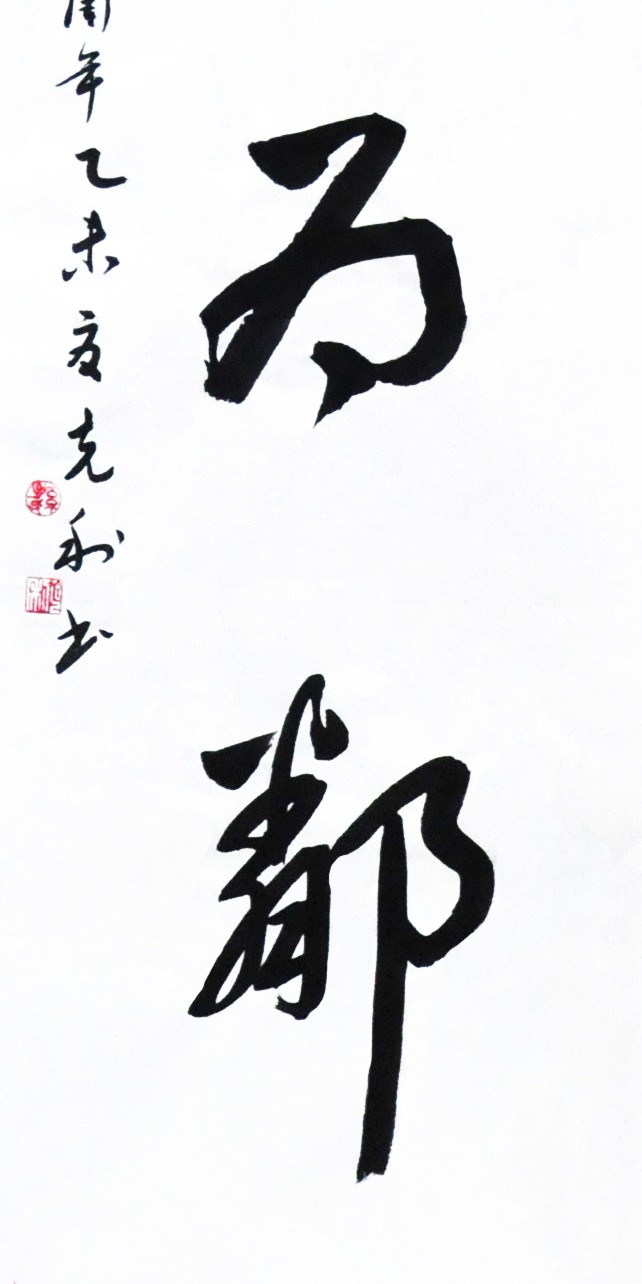 为鄰
周年乙未夏克利书